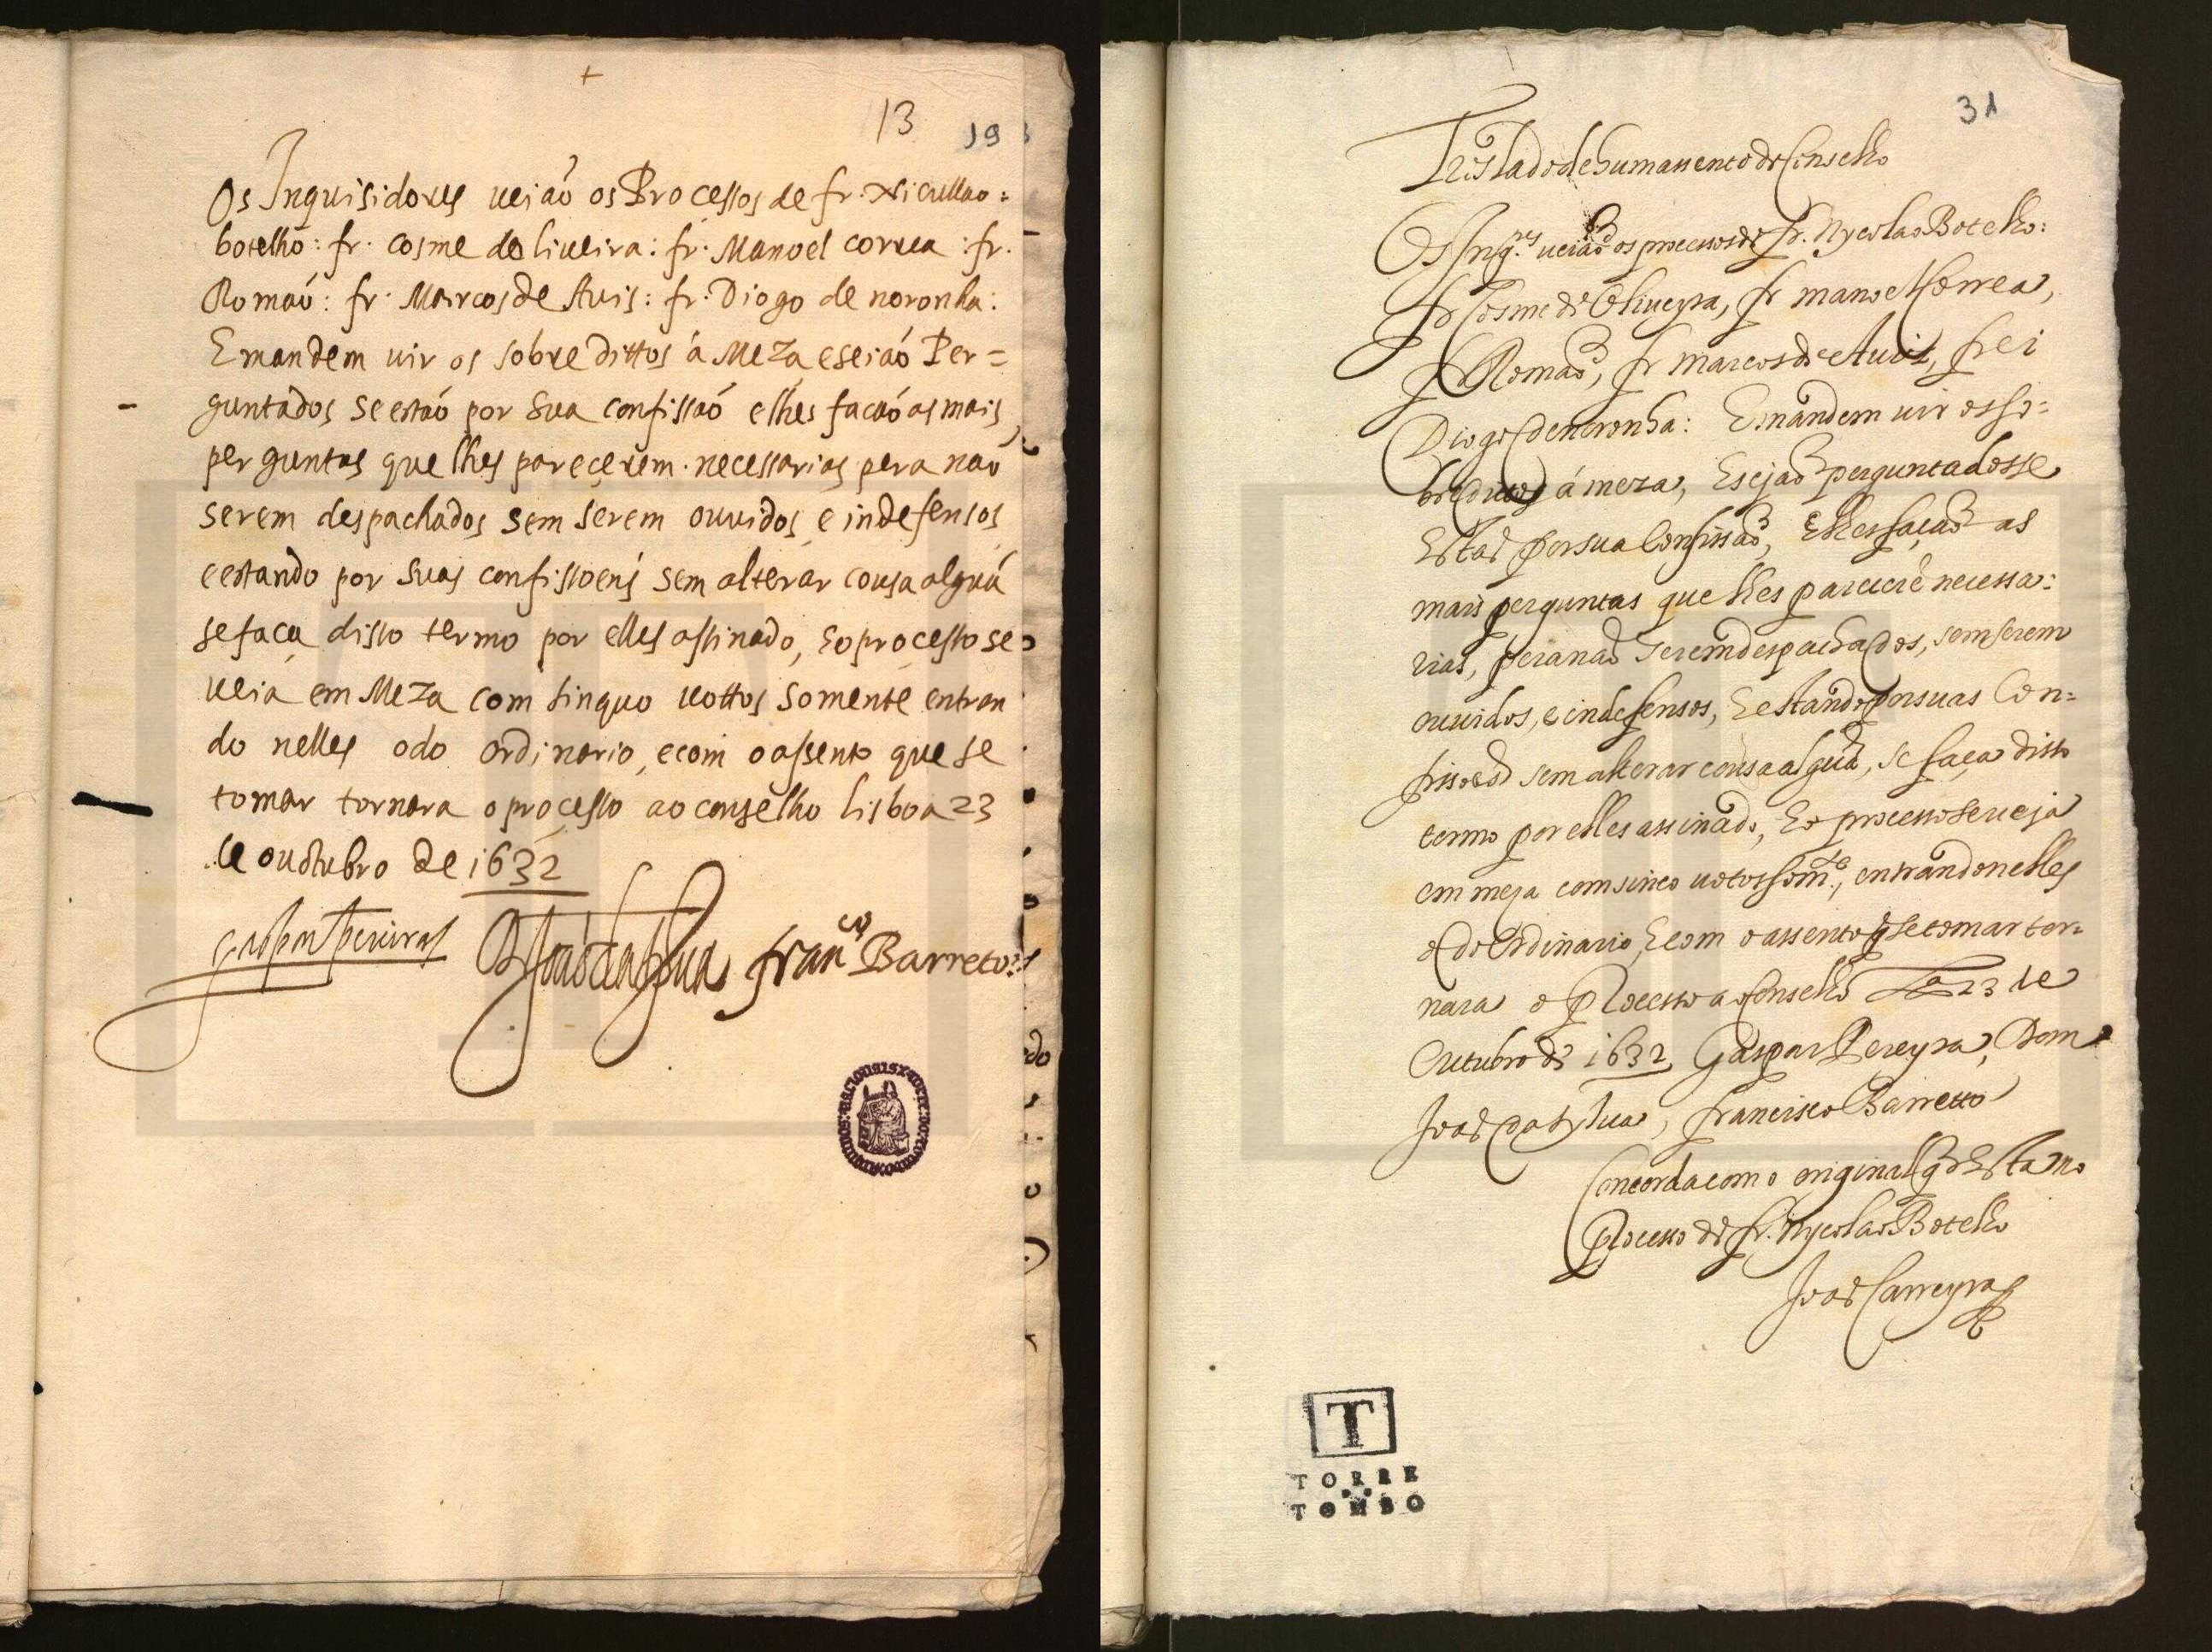 13 19
Os Inquisidores ueiaõ os Processos de fr. Nicullao =
botelho: fr. Cosme doliueira: fr. Manoel correa : fr.
Romaõ: fr. Marcos de Auis: fr. Diogo de noronha:
E mandem uir os sobredittos á Meza e seiaõ Per=
guntados se estaõ por sua confissaõ e lhes facaõ as mais
perguntas que lhes pareçerem necessarias pera naõ
serem despachados sem serem ouuidos, e indefensos
e estando por suas confissoens sem alterar cousa algua
se faca disso termo por elles assinado, e o processo se
ueia em Meza com sinquo uottos somente entran
do nelles o do ordinario, e com o assento que se
tomar tornara o processo ao conselho lisboa 23
de outubro de 1632
gaspar pereira
D. Joaõ da sylua
franco Barreto
31
Treslado de hum assento do Conselho
Os Inqres. ueiaõ os processos de fr. Nycolao Botelho:
fr Cosme de Oliueyra, fr manoel Correa,
fr Romaõ, fr marcos de Auis, frei
Diogo de noronha: E mandem uir os so=
breditos á meza, E sejaõ perguntados se
Estaõ por sua Confissaõ, E lhes façaõ as
mais perguntas que lhes parecerẽ necessa:
rias, pera naõ serem despachados, sem serem
ouuidos, e indefensos, E estando por suas Con=
fissoẽs sem alterar cousa alguã, se faça disto
termo por elles assinado, E o processo se ueja
em meza com sinco uotos somte., entrando nelles
o do Ordinario, E com o assento q̃ se tomar tor=
nara o processo ao Conselho Lxa 23 de
Outubro de 1632 Gaspar Pereyra, Dom
Joaõ da sylua, francisco Barretto
Concorda com o original q̃ Esta no
Processo de fr. Nycolao Botelho
Joaõ Carreyra
T
TORRE
TOMBO